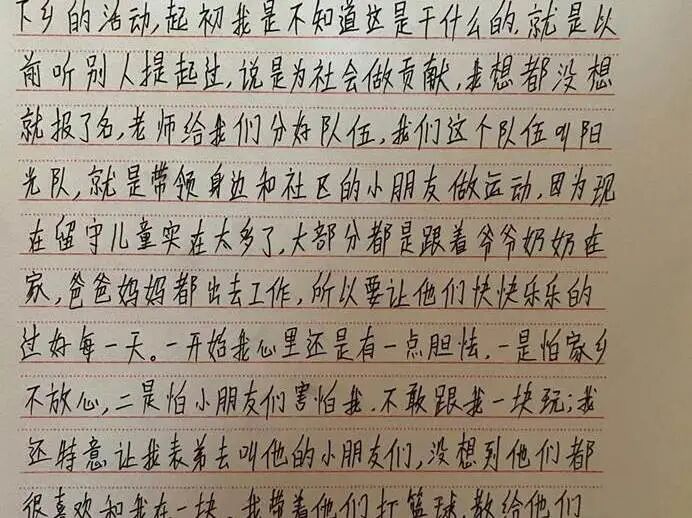 下乡的活动,起初我是不知道这是干什么的.就是以
前听别人提起过,说是为社会做贡献,我想都没想
就报了名,老师给我们分好队伍,我们这个队伍叫阳
光队,就是带领身边和社区的小朋友做运动,因为现
在留守儿童实在太多了,大部分都是跟着爷爷奶奶在
家,爸爸妈妈都出去工作,所以要让他们快快乐乐的
过好每一天。一开始我心里还是有一点胆怯.一是怕家乡
不放心,二是怕小朋友们害怕我.不敢跟我一块玩;我
还特意让我表弟去叫他的小朋友们,没想到他们都
很喜欢和我在一块.我带着他们打篮球.教给他们